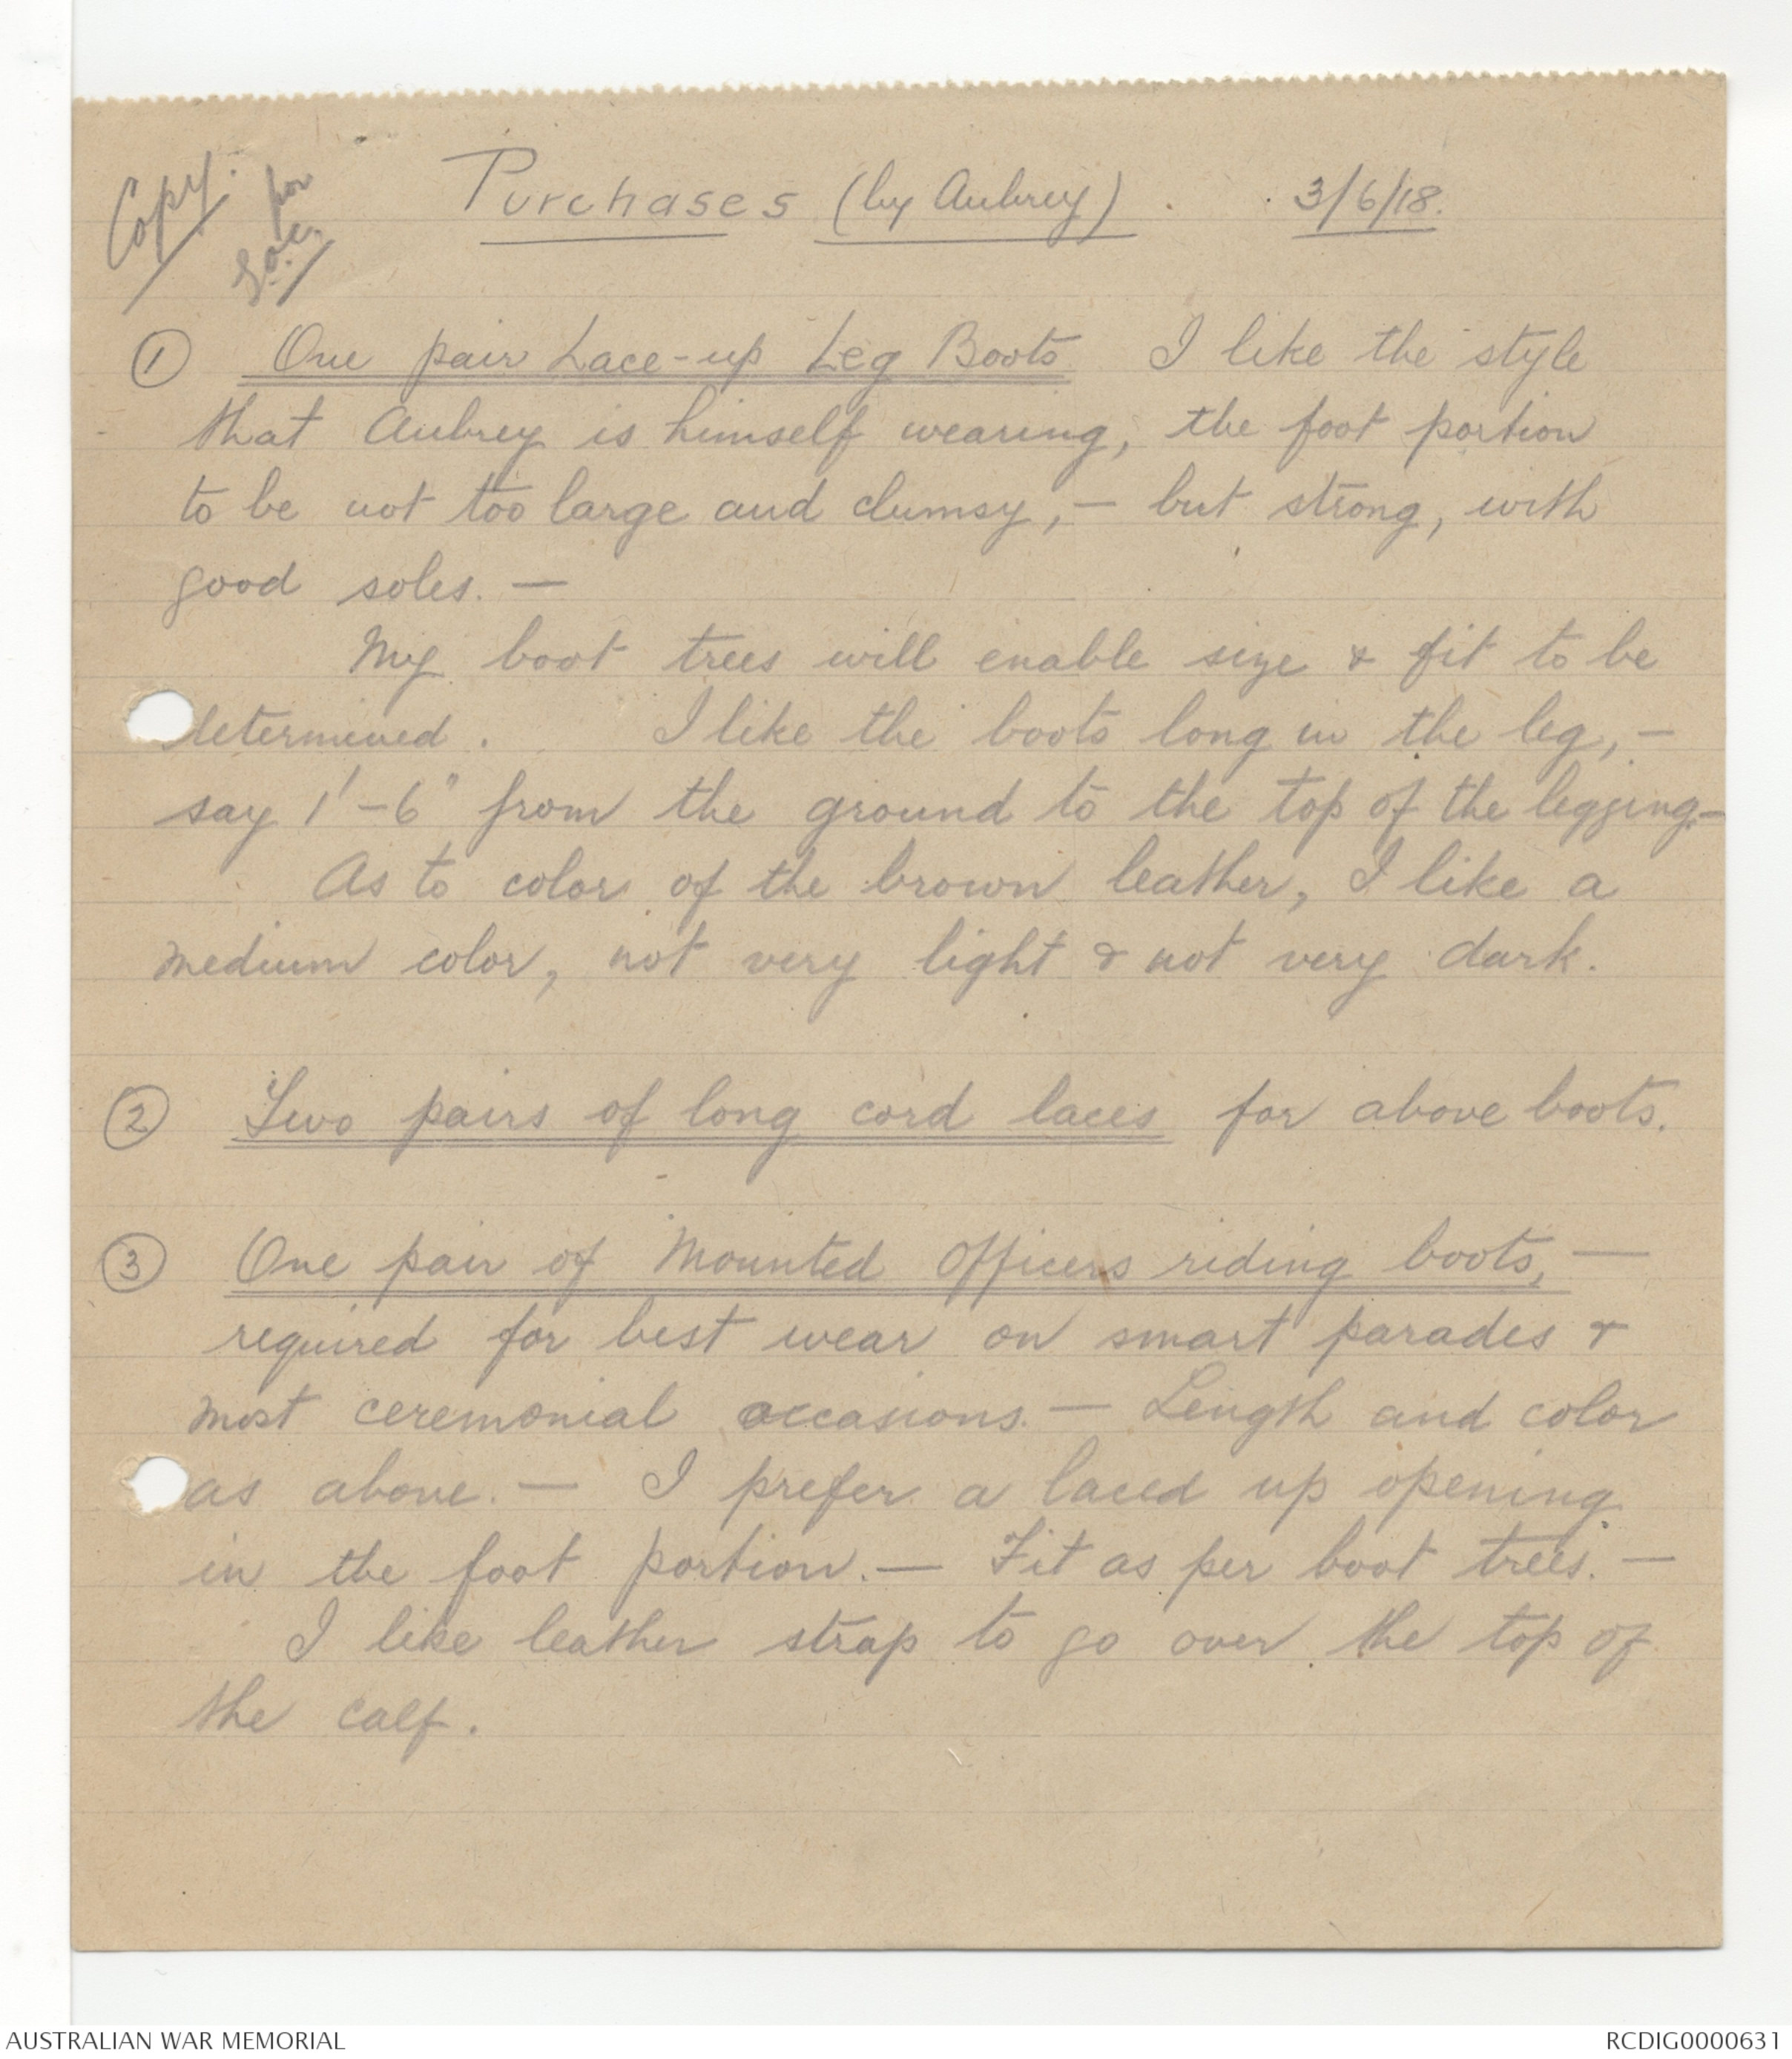 Copy. for
G.O.C.
Purchases (by Aubrey). 3/6/18.
① One pair Lace-up Leg Boots I like the style
that Aubrey is himself wearing, the foot portion
to be not too large and clumsy, — but strong, with
good soles. —
My boot trees will enable size & fit to be
determined. I like the boots long in the leg, —
say 1'-6" from the ground to the top of the legging. —
As to color of the brown leather, I like a
medium color, not very light & not very dark.
② Two pairs of long cord laces for above boots.
③ One pair of Mounted Officers riding boots, —
required for best wear on smart parades &
most ceremonial occasions. — Length and color
as above. — I prefer a laced up opening
in the foot portion. — Fit as per boot trees. —
I like leather strap to go over the top of
the calf.
AUSTRALIAN WAR MEMORIAL RCDIG0000631